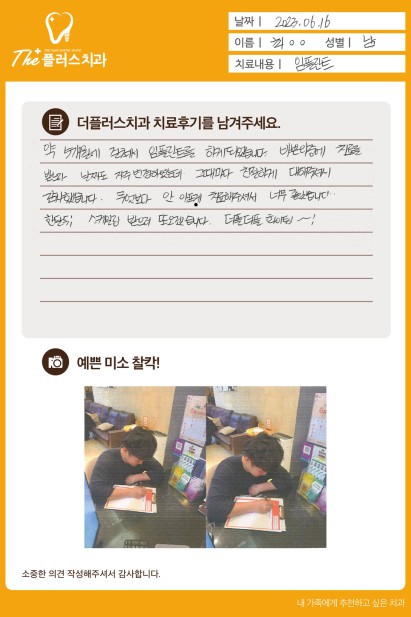 THE PLUS DENTAL CLINIC
The+플러스치과
날짜 | 2023. 06. 16
이름 | 최 o o 성별 | 남
치료내용 | 임플란트
더플러스치과 치료후기를 남겨주세요.
약 5개월에 걸쳐서 임플란트를 하게되었습니다. 바쁜와중에 치료를
받느라 날짜도 자주 변경하였는데 그때마다 친절하게 대해주셔서
감사했습니다. 무엇보다 안 아프게 치료해주셔서 너무 좋았습니다.
한달뒤, 스케일링 받으러 또오겠습니다. 더플더플 화이팅 ~!
예쁜 미소 찰칵!
소중한 의견 작성해주셔서 감사합니다.
내 가족에게 추천하고 싶은 치과